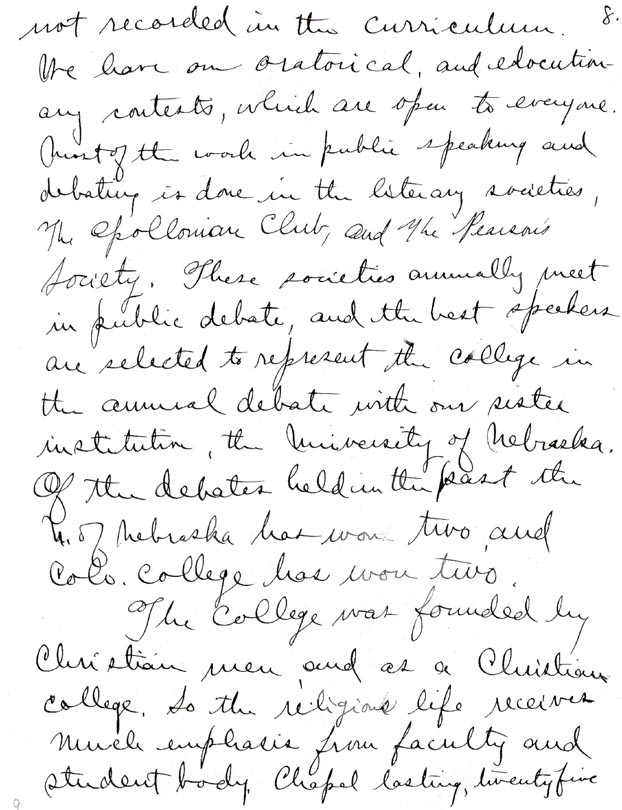 8.
not recorded in the curriculum.
We have our oratorical, and elocution-
ary contests, which are open to everyone.
Most of the work in public speaking and
debating is done in the literary societies,
The Apollonian Club, and The Pearsons
Society. These societies annually meet
in public debate, and the best speakers
are selected to represent the college in
the annual debate with our sister
institution, the University of Nebraska.
Of the debates held in the past the
U. of Nebraska has won two and
Colo. College has won two.
The College was founded by
Christian men and as a Christian
college. So the religious life receives
much emphasis from faculty and
student body. Chapel lasting, twenty five
9